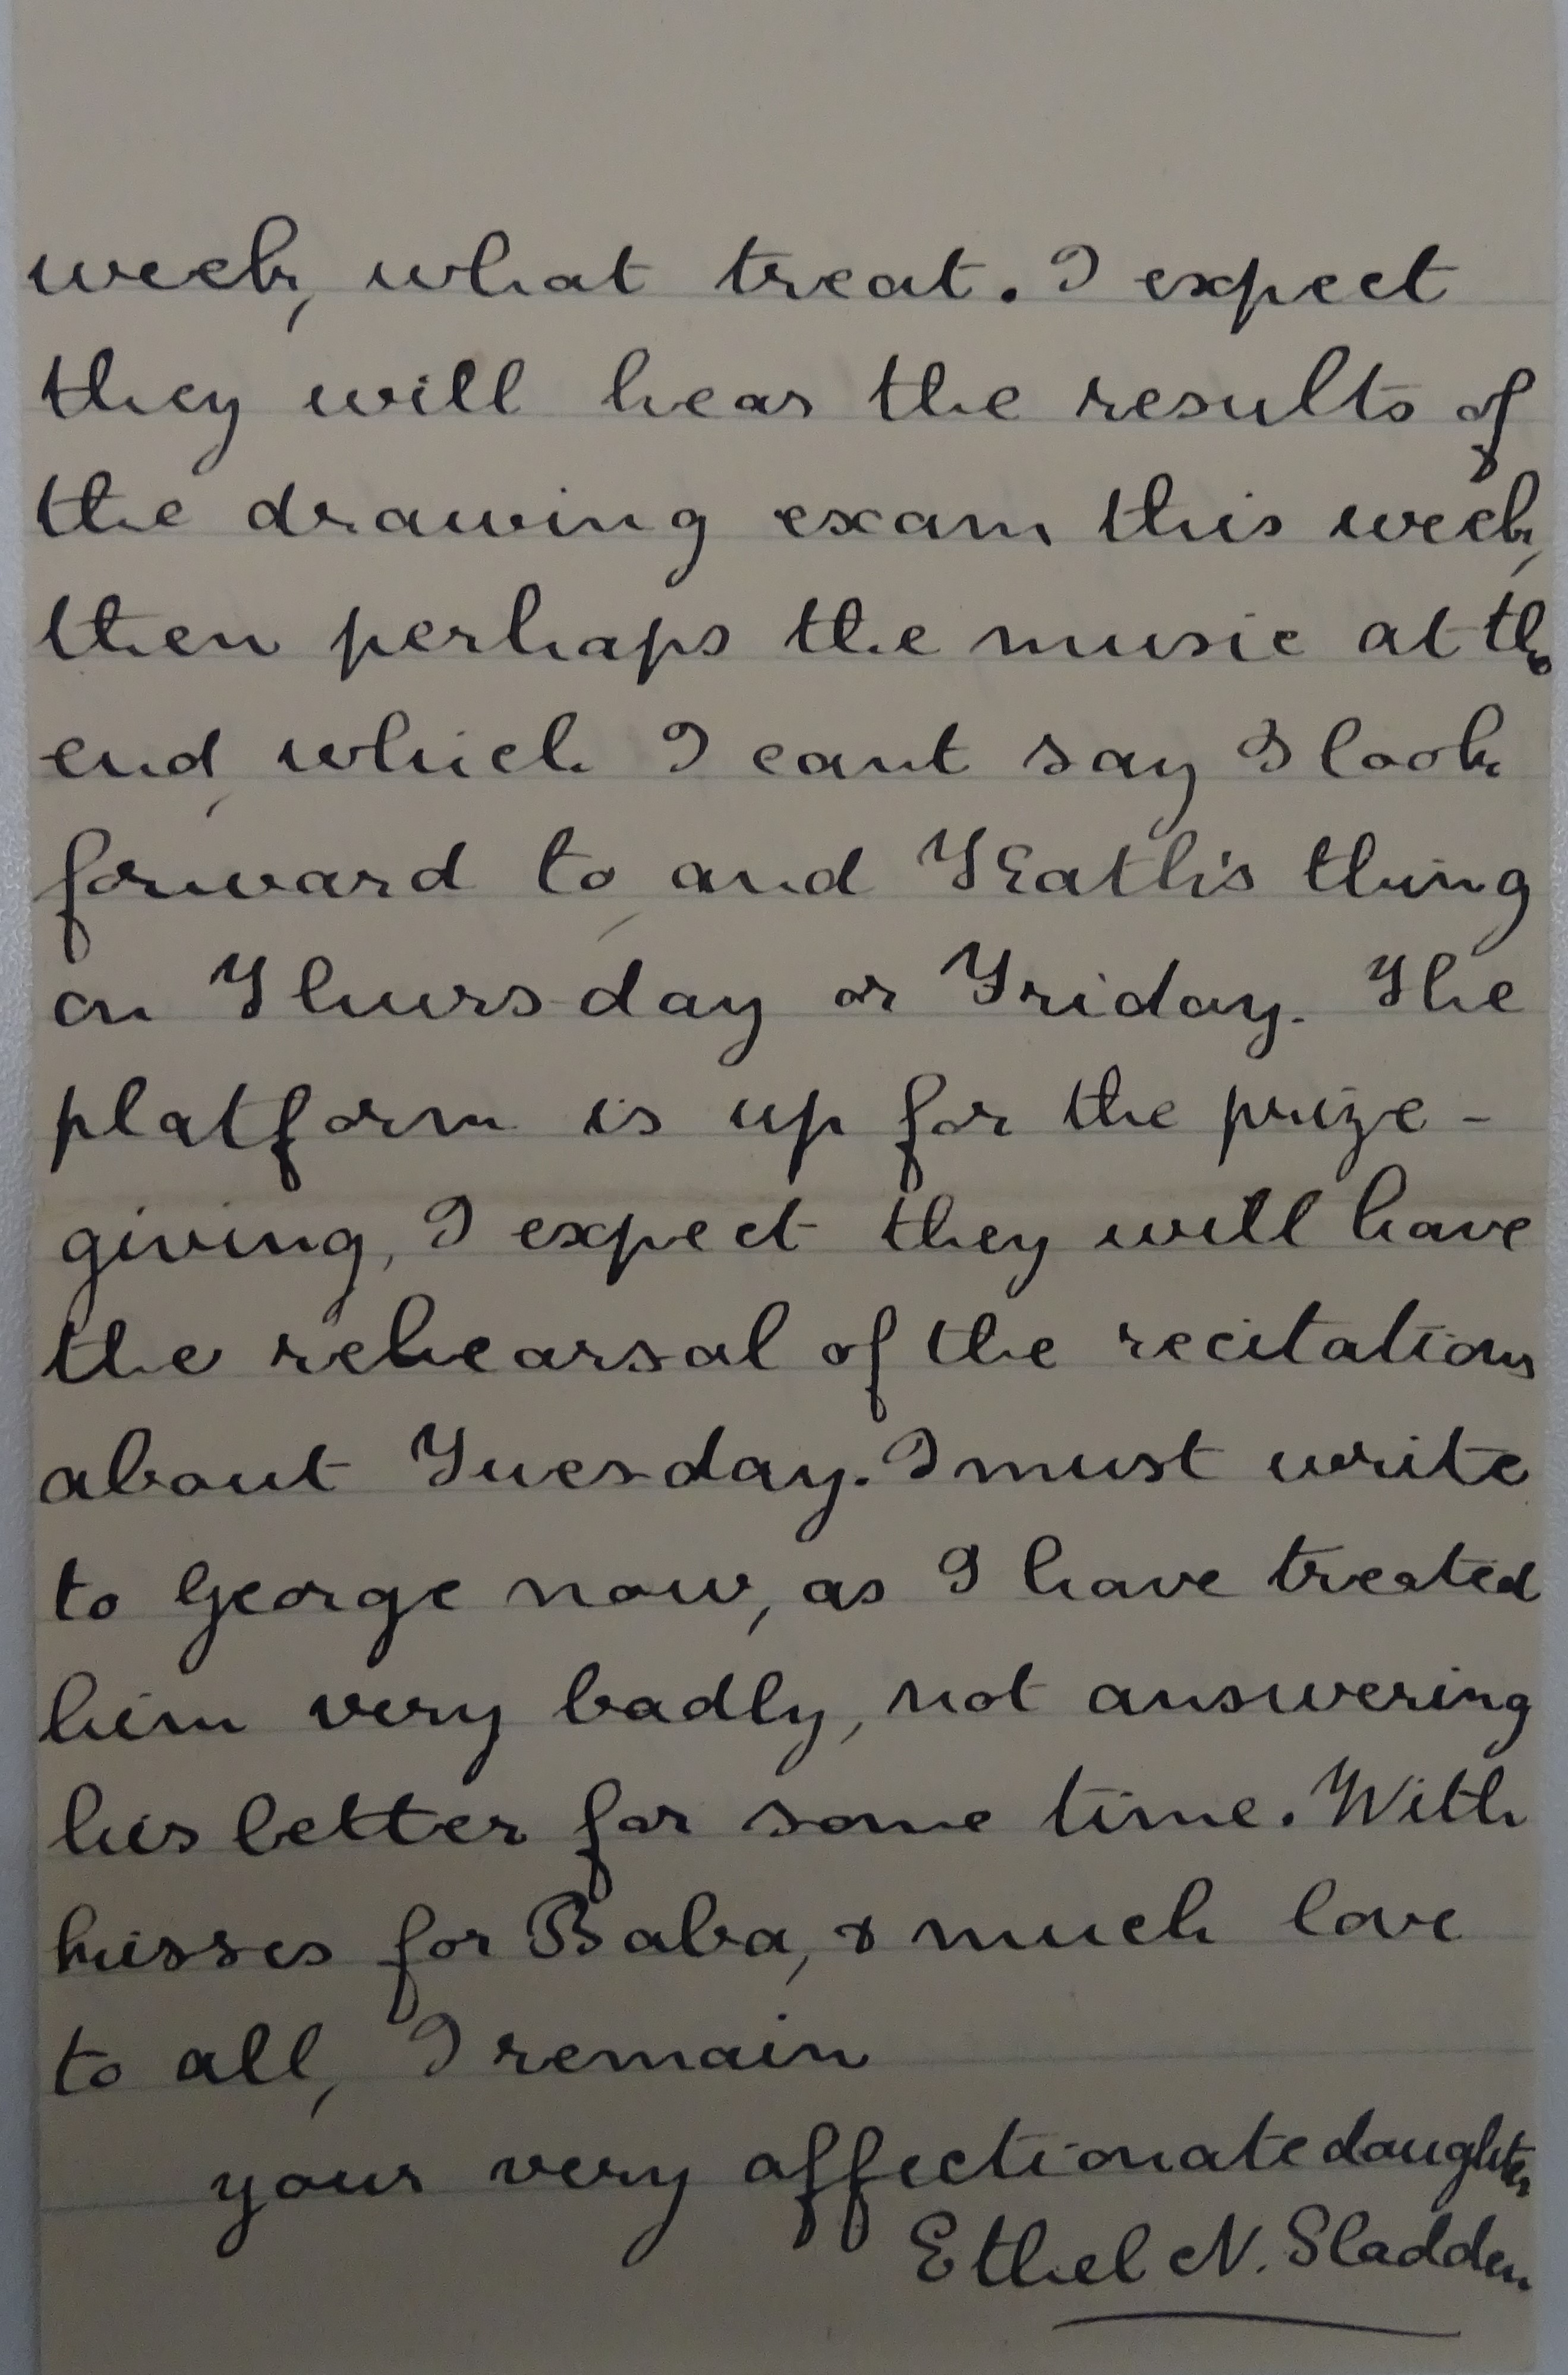 week, what treat. I expect
they will hear the results of
the drawing exam this week,
then perhaps the music at the
end, which I cant say I look
forward to, and Kath's thing
on Thursday or Friday. The
platform is up for the prize-
giving, I expect they will have
the rehearsal of the recitations
about Tuesday. I must write
to George now, as I have treated
him very badly, not answering
his letter for some time. With
kisses for Baba, & much love
to all, I remain
your very affectionate daughter
Ethel N. Sladden